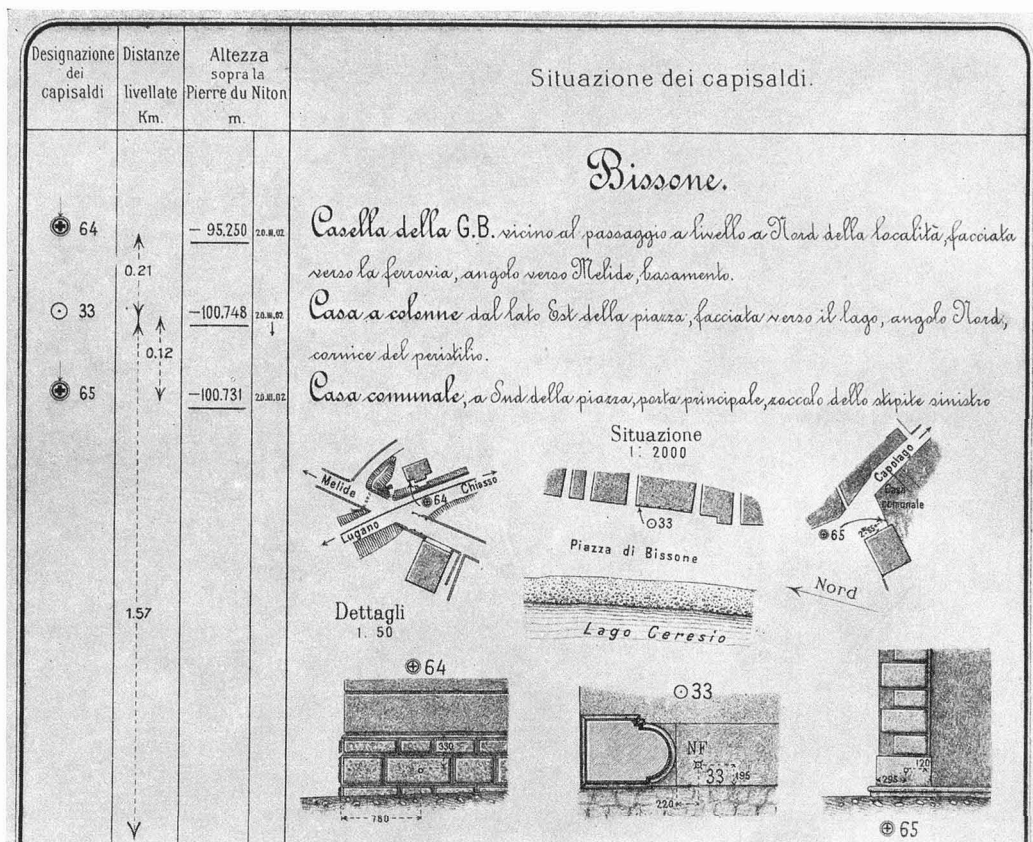 Designazione dei capisaldi
Distanze livellate Km.
Altezza sopra la Pierre du Niton m.
Situazione dei capisaldi.
Bissone.
64
— 95.250
Casella della G.B. vicino al passaggio a livello a Nord della località, facciata
verso la ferrovia, angolo verso Melide, basamento.
0.21
33
—100.748
Casa a colonne dal lato Est della piazza, facciata verso il lago, angolo Nord,
cornice del peristilio.
0.12
65
—100.731
Casa comunale, a Sud della piazza, porta principale, zoccolo dello stipite sinistro
Situazione
1:2000
Melide
Chiasso
64
Lugano
33
Piazza di Bissone
Capolago
Casa
comunale
65
Nord
Lago Ceresio
1.57
Dettagli
1. 50
64
330
780
33
NF
33
195
220
120
295
65